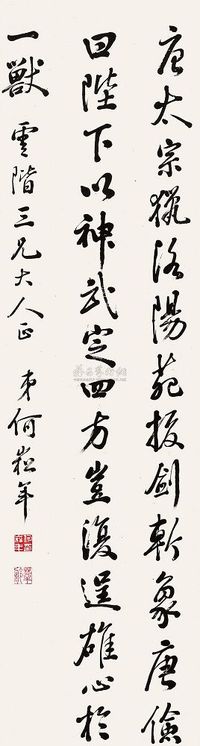 唐太宗獵洛陽苑拔劍斬象唐儉
曰陛下以神武定四方豈復逞雄心於
一獸 雲階三兄大人正 弟何崧年